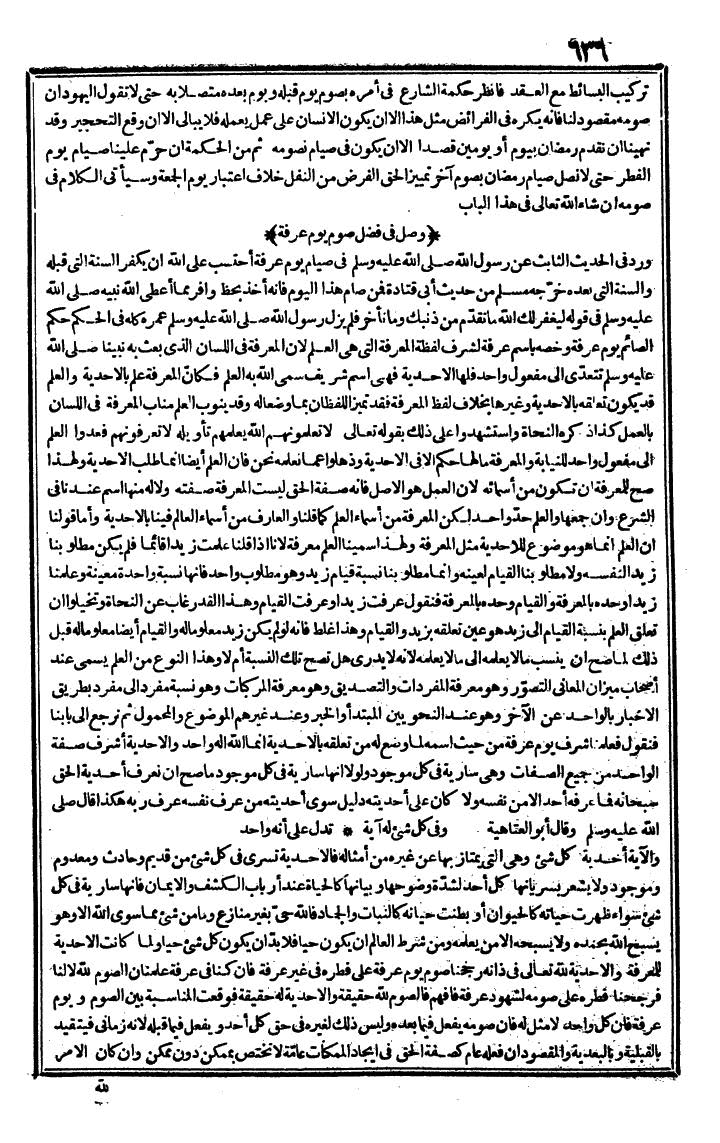 ٩٣٦
تركيب البسائط مع العقد فانظر حكمة الشارع فى أمره بصوم يوم قبله ويوم بعده متصلا به حتى لا تقول اليهود ان
صومه مقصود لنا فانه يكره فى الفرائض مثل هذا الا ان يكون الانسان على عمل يعمله فلا يبالى الا ان وقع التحجير وقد
نهينا ان نقدم رمضان بيوم أو يومين قصدا الا ان يكون فى صيام نصومه ثم من الحكمة ان حرّم علينا صيام يوم
الفطر حتى لا نصل صيام رمضان بصوم آخر تمييز الحق الفرض من النفل خلاف اعتبار يوم الجمعة وسيأتى الكلام فى
صومه ان شاء الله تعالى فى هذا الباب
﴿وصل فى فضل صوم يوم عرفة﴾
ورد فى الحديث الثابت عن رسول الله صلى الله عليه وسلم فى صيام يوم عرفة أحتسب على الله ان يكفر السنة التى قبله
والسنة التى بعده خرّجه مسلم من حديث أبى قتادة فمن صام هذا اليوم فانه أخذ بحظ وافر مما أعطى الله نبيه صلى الله
عليه وسلم فى قوله ليغفر لك الله ما تقدّم من ذنبك وما تأخر فلم يزل رسول الله صلى الله عليه وسلم عمره كله فى الحكم حكم
الصائم يوم عرفة وخصه باسم عرفة لشرف لفظة المعرفة التى هى العلم لان المعرفة فى اللسان الذى بعث به نبينا صلى الله
عليه وسلم تتعدّى الى مفعول واحد فلها الاحدية فهى اسم شريف سمى الله به العلم فكانّ المعرفة علم بالاحدية والعلم
قد يكون تعلقه بالاحدية وغيرها بخلاف لفظ المعرفة فقد تميز اللفظان بما وضعاله وقد ينوب العلم مناب المعرفة فى اللسان
بالعمل كذا ذكره النحاة واستشهدوا على ذلك بقوله تعالى لا تعلمونهم الله يعلمهم تأويله لا تعرفونهم فعدوا العلم
الى مفعول واحد للنيابة والمعرفة مالها حكم الا فى الاحدية وذهلوا عما نعلمه نحن فان العلم أيضا انما طلب الاحدية ولهذا
صح للمعرفة ان تكون من أسمائه لان العمل هو الاصل فانه صفة الحق ليست المعرفة صفته ولاله منها اسم عندنا فى
الشرع وان جمعها والعلم حدّ واحد لكن المعرفة من أسماء العلم كما قلنا والعارف من أسماء العالم فينا بالاحدية وأما قولنا
ان العلم انما هو موضوع للاحدية مثل المعرفة ولهذا سمينا العلم معرفة لانا اذا قلنا علمت زيدا قائما فلم يكن مطلوبنا
زيد النفسه ولا مطلوبنا القيام لعينه وانما مطلوبنا نسبة قيام زيد وهو مطلوب واحد فانها نسبة واحدة معينة وعلمنا
زيدا وحده بالمعرفة والقيام وحده بالمعرفة فنقول عرفت زيدا وعرفت القيام وهذا القدر غاب عن النحاة وتخيلوا ان
تعلق العلم بنسبة القيام الى زيد هو عين تعلقه بزيد والقيام وهذا غلط فانه لو لم يكن زيد معلوماله والقيام أيضا معلوماله قبل
ذلك لما صح ان ينسب ما لا يعلمه الى ما لا يعلمه لانه لا يدرى هل تصح تلك النسبة أم لا وهذا النوع من العلم يسمى عند
أصحاب ميزان المعانى التصوّر وهو معرفة المفردات والتصديق وهو معرفة المركبات وهو نسبة مفرد الى مفرد بطريق
الاخبار بالواحد عن الآخر وهو عند النحويين المبتدأ والخبر وعند غيرهم الموضوع والمحمول ثم نرجع الى بابنا
فنقول فعلمنا شرف يوم عرفة من حيث اسمه لما وضع له من تعلقه بالاحدية انما الله اله واحد والاحدية أشرف صفة
الواحد من جميع الصفات وهى سارية فى كل موجود ولولا انها سارية فى كل موجود ما صح ان نعرف أحدية الحق
سبحانه فما عرفه أحد الا من نفسه ولا كان على أحديته دليل سوى أحديته من عرف نفسه عرف ربه هكذا قال صلى
الله عليه وسلم وقال أبو العتاهية وفى كل شئ له آية * تدل على أنه واحد
والآية أحدية كل شئ وهى التى يمتاز بها عن غيره من أمثاله فالاحدية تسرى فى كل شئ من قديم وحادث ومعدوم
وموجود ولا يشعر بسريانها كل أحد لشدّة وضوحها وبيانها كالحياة عند أرباب الكشف والايمان فانها سارية فى كل
شئ سواء ظهرت حياته كالحيوان أو بطنت حياته كالنبات والجماد فالله حىّ بغير منازع وما من شئ مما سوى الله الا وهو
يسبح الله بحمده ولا يسبحه الا من يعلمه ومن شرط العالم ان يكون حيا فلا بدّ ان يكون كل شئ حيا ولما كانت الاحدية
للمعرفة والاحدية لله تعالى فى ذاته رجحنا صوم يوم عرفة على فطره فى غير عرفة فان كنا فى عرفة علمنا ان الصوم لله لا لنا
فرجحنا فطره على صومه لشهود عرفة فافهم فالصوم لله حقيقة والاحدية له حقيقة فوقعت المناسبة بين الصوم ويوم
عرفة فان كل واحد لا مثل له فان صومه يفعل فيما بعده وليس ذلك لغيره فى حق كل أحد ويفعل فيما قبله لانه زمانى فيتقيد
بالقبلية والبعدية والمقصود ان فعله عام كصفة الحق فى ايجاد الممكنات عامّة لا تختص بممكن دون ممكن وان كان الامر
لله